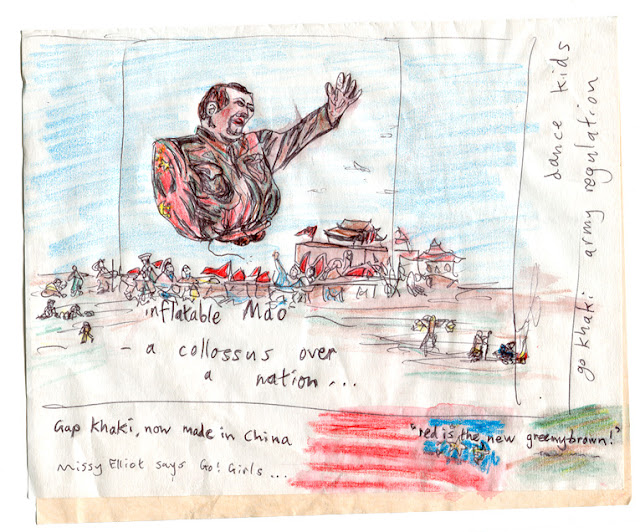 dance kids
go khaki army regulation
inflatable Mao
- a collossus over
a nation...
Gap Khaki, now made in China
"red is the new greenybrown!"
Missy Elliot says Go! Girls ...